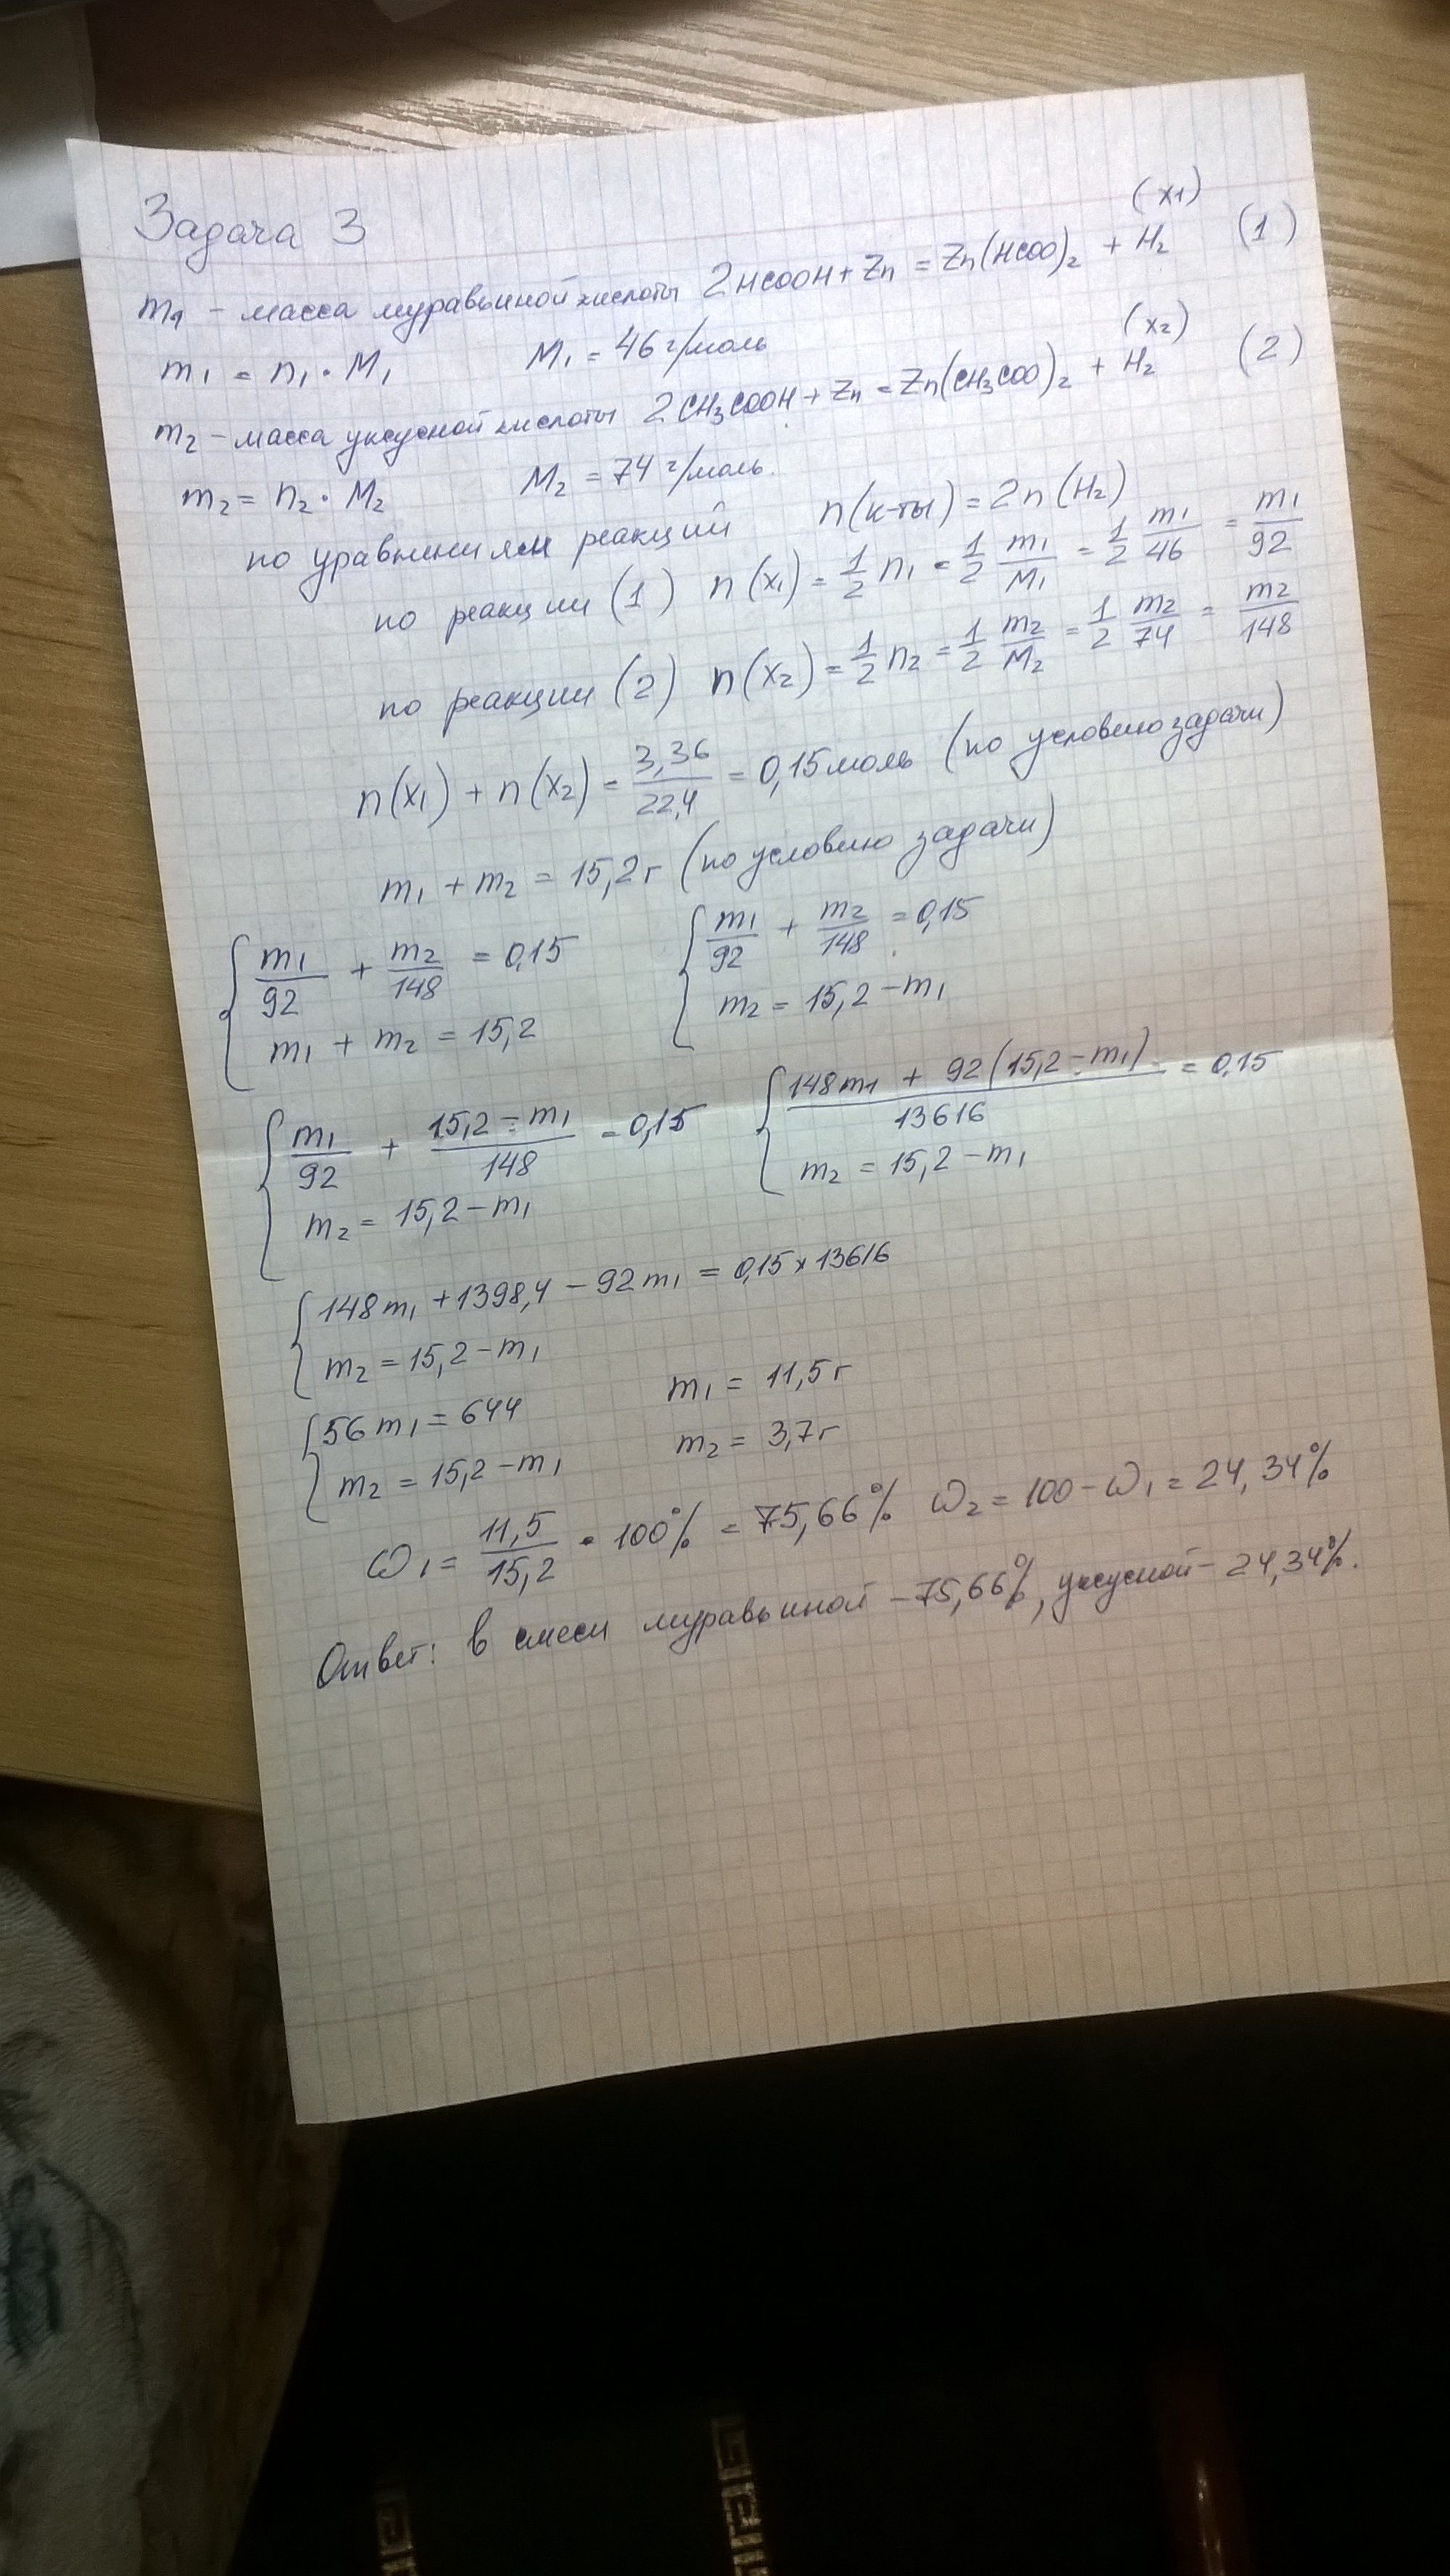 Задача 3
(x₁)
m₁ - масса муравьиной кислоты 2HCOOH + Zn = Zn(HCOO)₂ + H₂ (1)
m₁ = n₁ · M₁ M₁ = 46 г/моль
(x₂)
m₂ - масса уксусной кислоты 2CH₃COOH + Zn = Zn(CH₃COO)₂ + H₂ (2)
m₂ = n₂ · M₂ M₂ = 74 г/моль.
по уравнениям реакций n(к-ты) = 2n(H₂)
по реакции (1) n(x₁) = 1/2 n₁ = 1/2 m₁/M₁ = 1/2 m₁/46 = m₁/92
по реакции (2) n(x₂) = 1/2 n₂ = 1/2 m₂/M₂ = 1/2 m₂/74 = m₂/148
n(x₁) + n(x₂) = 3,36/22,4 = 0,15 моль (по условию задачи)
m₁ + m₂ = 15,2 г (по условию задачи)
{ m₁/92 + m₂/148 = 0,15 { m₁/92 + m₂/148 = 0,15
m₁ + m₂ = 15,2 m₂ = 15,2 - m₁
{ m₁/92 + 15,2 - m₁/148 = 0,15 { 148m₁ + 92(15,2 - m₁)/13616 = 0,15
m₂ = 15,2 - m₁ m₂ = 15,2 - m₁
{ 148m₁ + 1398,4 - 92m₁ = 0,15 × 13616
m₂ = 15,2 - m₁
{ 56m₁ = 644 m₁ = 11,5 г
m₂ = 15,2 - m₁ m₂ = 3,7 г
ω₁ = 11,5/15,2 · 100% = 75,66% ω₂ = 100 - ω₁ = 24,34%
Ответ: в смеси муравьиной - 75,66%, уксусной - 24,34%.